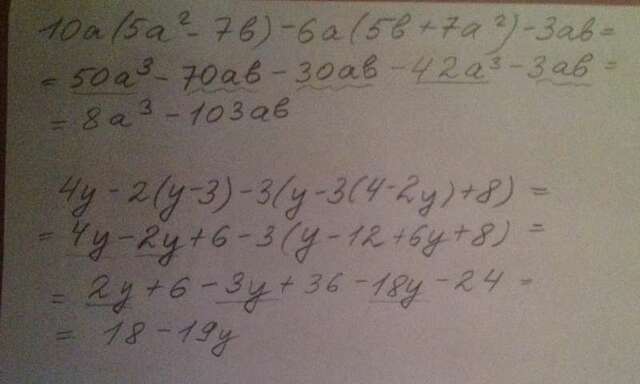 10a(5a² - 7b) - 6a(5b + 7a²) - 3ab =
= 50a³ - 70ab - 30ab - 42a³ - 3ab =
= 8a³ - 103ab
4y - 2(y - 3) - 3(y - 3(4 - 2y) + 8) =
= 4y - 2y + 6 - 3(y - 12 + 6y + 8) =
= 2y + 6 - 3y + 36 - 18y - 24 =
= 18 - 19y